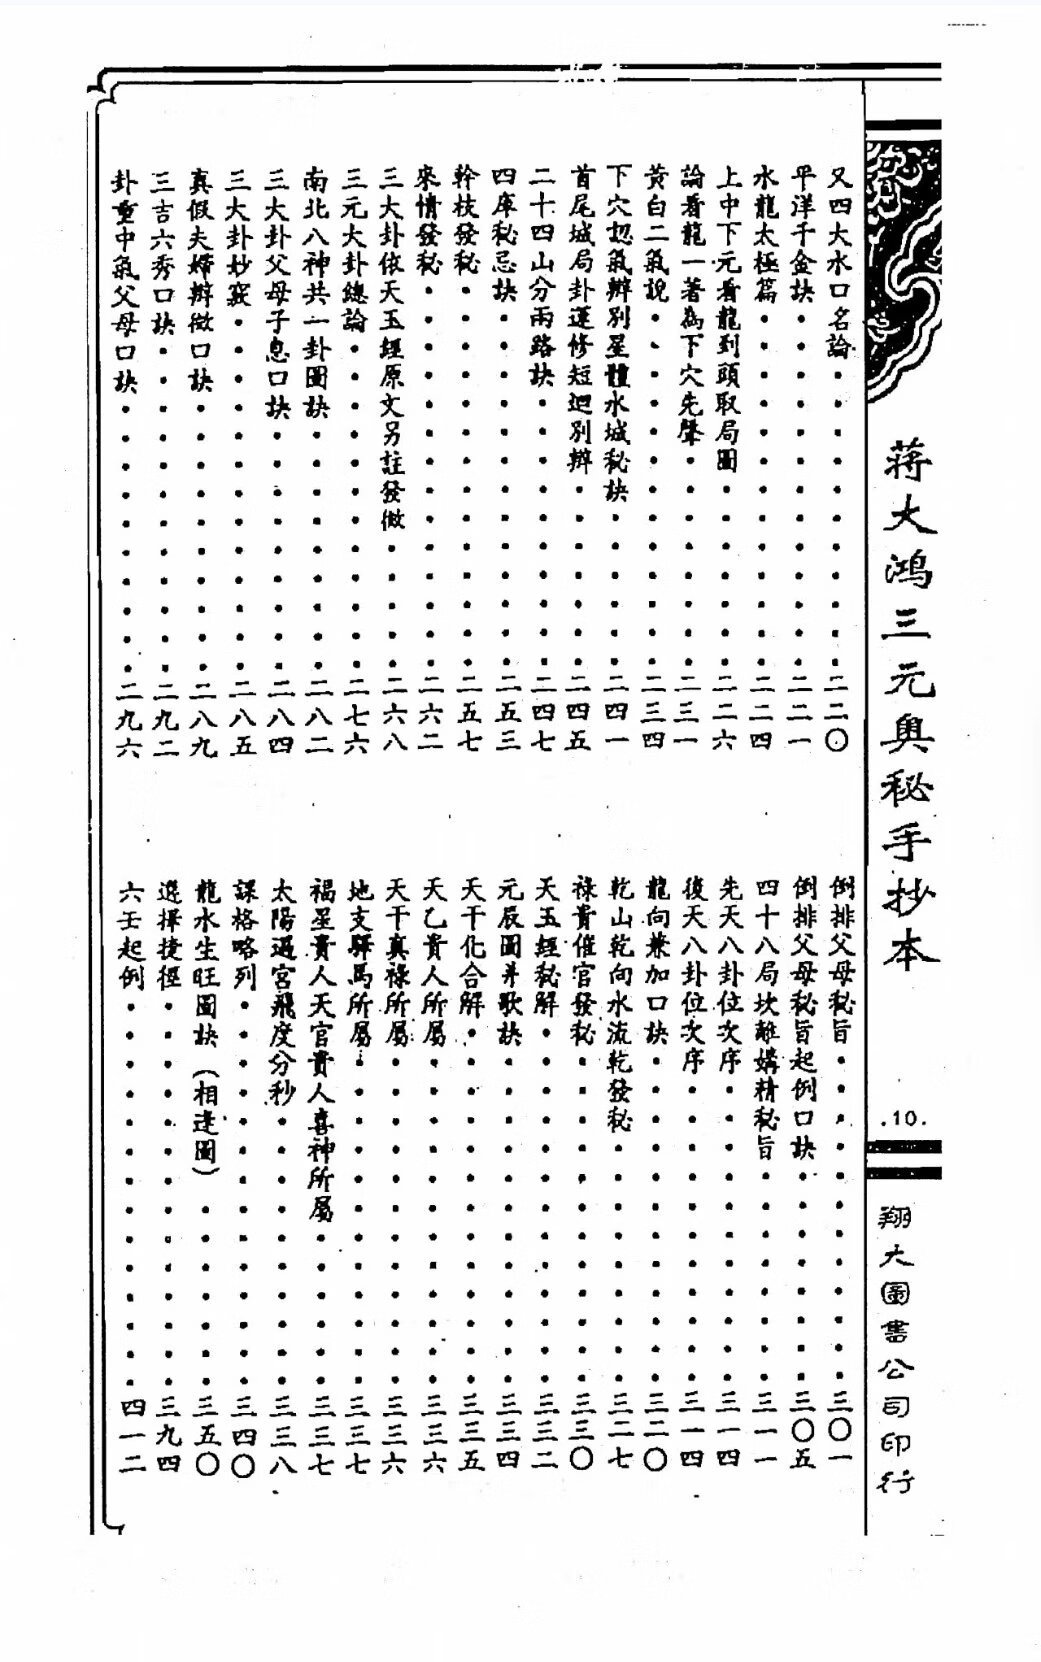 蔣大鴻三元奧秘手抄本
.10.
翔大圖書公司印行
又四大水口名論・・・・・・・・・・・二二〇
平洋千金訣・・・・・・・・・・・・・二二一
水龍太極篇・・・・・・・・・・・・・二二四
上中下元看龍到頭取局圖・・・・・・・二二六
論看龍一著為下穴先聲・・・・・・・・二三一
黃白二氣說・・・・・・・・・・・・・二三四
下穴認氣辨別星體水城秘訣・・・・・・二四一
首尾城局卦運修短迴別辨・・・・・・・二四五
二十四山分兩路訣・・・・・・・・・・二四七
四庫秘忌訣・・・・・・・・・・・・・二五三
幹枝發秘・・・・・・・・・・・・・・二五七
來情發秘・・・・・・・・・・・・・・二六二
三大卦依天玉經原文另註發微・・・・・二六八
三元大卦總論・・・・・・・・・・・・二七六
南北八神共一卦圖訣・・・・・・・・・二八二
三大卦父母子息口訣・・・・・・・・・二八四
三大卦妙竅・・・・・・・・・・・・・二八五
真假夫婦辨微口訣・・・・・・・・・・二八九
三吉六秀口訣・・・・・・・・・・・・二九二
卦重中氣父母口訣・・・・・・・・・・二九六
倒排父母秘旨・・・・・・・・・・・・三〇一
倒排父母秘旨起例口訣・・・・・・・・三〇五
四十八局坎離媾精秘旨・・・・・・・・三一一
先天八卦位次序・・・・・・・・・・・三一四
後天八卦位次序・・・・・・・・・・・三一四
龍向兼加口訣・・・・・・・・・・・・三二〇
乾山乾向水流乾發秘・・・・・・・・・三二七
祿貴催官發秘・・・・・・・・・・・・三三〇
天玉經秘解・・・・・・・・・・・・・三三二
元辰圖并歌訣・・・・・・・・・・・・三三四
天干化合解・・・・・・・・・・・・・三三五
天乙貴人所屬・・・・・・・・・・・・三三六
天干真祿所屬・・・・・・・・・・・・三三六
地支驛馬所屬・・・・・・・・・・・・三三七
福星貴人天官貴人喜神所屬・・・・・・三三七
太陽過宮飛度分秒・・・・・・・・・・三三八
課格略列・・・・・・・・・・・・・・三四〇
龍水生旺圖訣（相逢圖）・・・・・・・三五〇
選擇捷徑・・・・・・・・・・・・・・三九四
六壬起例・・・・・・・・・・・・・・四一二